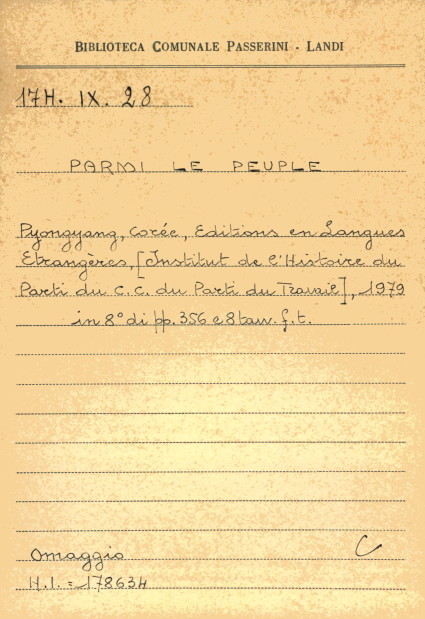 BIBLIOTECA COMUNALE PASSERINI - LANDI
17H. IX. 28
PARMI LE PEUPLE
Pyongyang, Corée, Editions en Langues
Etrangères, [Institut de l'Histoire du
Parti du C.C. du Parti du Travail], 1979
in 8° di pp. 356 e 8 tav. f.t.
Omaggio
C
H.I. = 178634